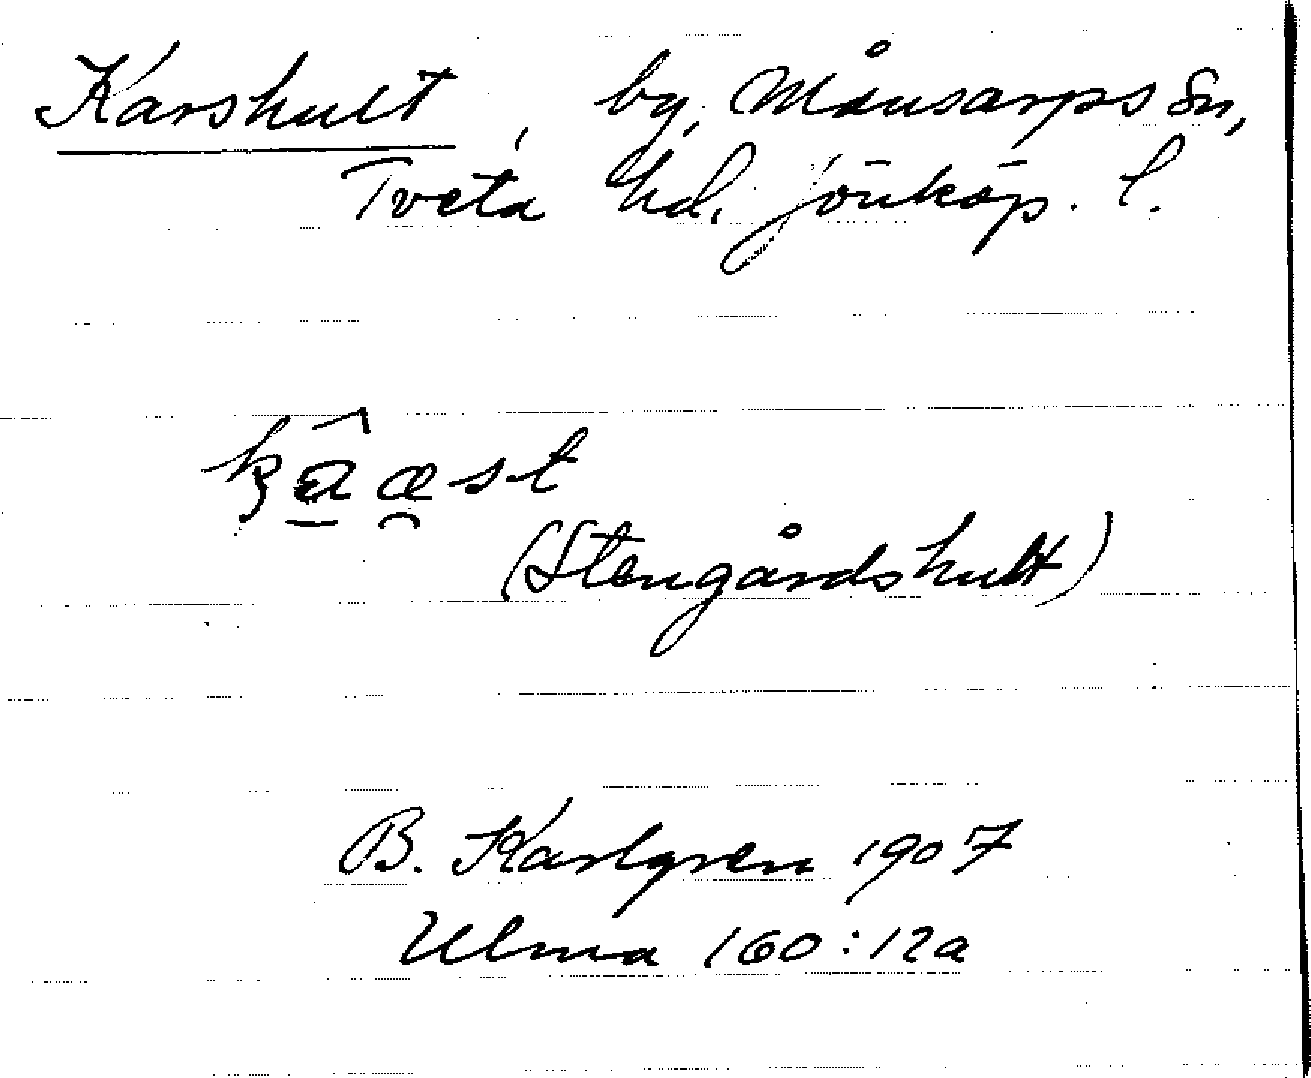 Karshult, by, Månsarps sn,
Tveta hd. Jönköp. l.
(Stengårdshult)
B. Karlgren 1907
Ulma 160:12a